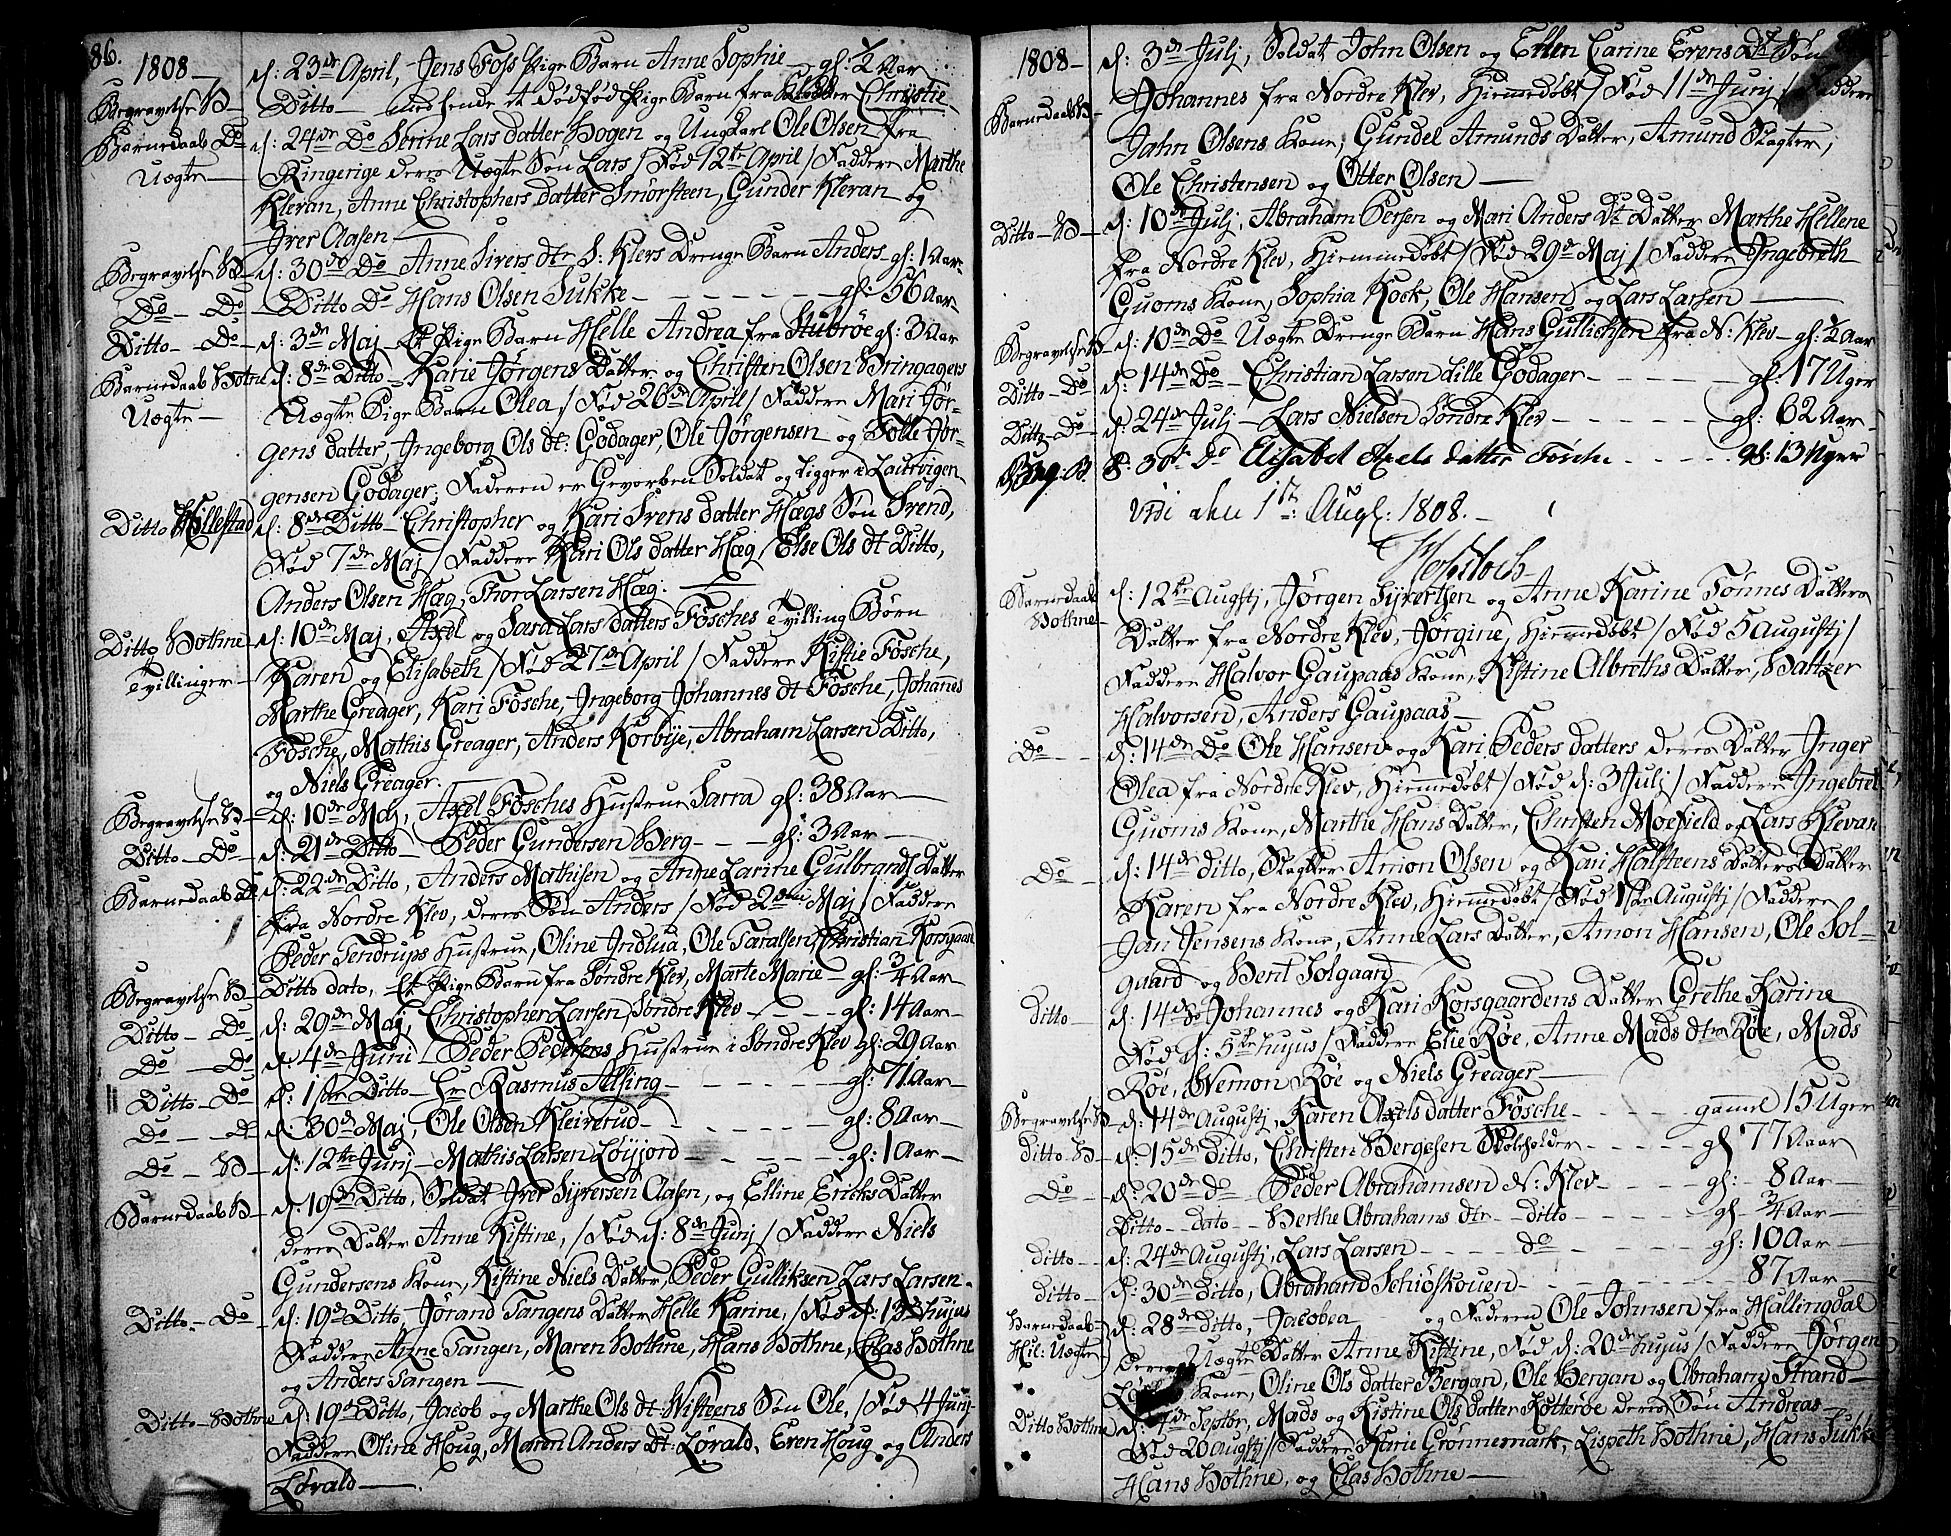 86.
1808 —
d: 23de April, Jens Foss Pige Barn Anne Sophie — gl: ½ Aar
Begravelse B — Ditto — dødfød Pige Barn fra Christie
Barnedaab Do — d: 24de Do Senne Lars datter Hogen og Ungkarl Ole Olsen fra
Uægte — Ringerige deres Uægte Søn Lars / Fød 12te April / Faddere Marthe
Kleran, Anne Christophers datter Smørsteen, Gunder Kleran og
Iver Aasen —
Begravelse B — d: 30de Do Anne Sivers dtr S: Klevs Drenge Barn Anders gl: 1 Aar
Do — Do — Ditto Do Hans Olsen Sukke — gl: 56 Aar
Ditto — Do — d: 3de Maj — Et Pige Barn Helle Andrea fra Stubrøe gl: 3 Aar
Barnedaab Bothne d: 8de Ditto — Karie Jørgens Datter og Christen Olsen Bringagers
Uægte — Uægte Pige Barn Olea / Fød 26de April / Faddere Mari Jør-
gens datter, Ingeborg Ols dt: Godager, Ole Jørgensen og Tolle Jør-
gensen Godager, Faderen er Gevorben Soldat og ligger i Laurvigen
Ditto Hillestad d: 8de Ditto — Christopher og Kari Ivens datter Hægs Søn Svend,
Fød 7de Maj / Faddere Kari Ols datter Hæg, Else Ols dt Ditto,
Anders Olsen Hæg, Thor Larsen Hæg. —
Ditto Bothne d: 10de Maj, Axel og Sara Lars datters Fosches Tvilling Børn
Tvillinger — Karen og Elisabeth / Fød 27de April / Faddere Kistie Fosche,
Marthe Greager, Kari Fosche, Ingeborg Johannes dt Fosche, Johannes
Fosche, Mathis Greager, Anders Korbye, Abraham Larsen Ditto,
og Niels Greager.
Begravelse B — d: 10de Maj, Axel Fosches Hustrue Sarra gl: 38 Aar —
Ditto — Do — d: 21de Ditto — Peder Gundersen Berg — gl: 3 Aar —
Barnedaab Do d: 22de Ditto, Anders Mathisen og Anne Larine Gulbrands Datter
fra Nordre Klev, deres Søn Anders / Fød 2den Maj / Faddere
Peder Tendrups Hustrue, Oline Indlua, Ole Taralsen, Christian Korsgaard
Begravelse B — Ditto dato, Et Pige Barn fra Søndre Klev, Marte Marie — gl: ¾ Aar
Ditto — Do — d: 29de Maj, Christopher Larsen Søndre Klev — gl: 14 Aar —
Do — Do — d: 4de Juni — Peder Pedersens Hustrue i Søndre Klev gl: 29 Aar
Ditto — Do — d: 1ste Ditto — Hr Rasmus Alsing — gl: 71 Aar —
Do — — d: 30de Maj, Ole Olsen Kleiverud — gl: 8 Aar —
Do — B — d: 12te Junj — Mathis Larsen Løyjord — gl: 1 Aar —
Barnedaab B — d: 19de Ditto, Soldat Iver Syversen Aasen, og Elline Ericks Datter
deres Datter Anne Kistine, / Fød d: 8de Junj / Faddere Niels
Gundersens Kone, Kistine Niels Datter, Peder Gulliksen, Lars Larsen —
Ditto — Do — d: 19de Ditto, Jørand Tangens Datter Helle Karine, / Fød d: 13de hujus
Faddere Anne Tangen, Maren Bothne, Hans Bothne, Clas Bothne
og Anders Tangen —
Ditto — Bothne d: 19de Ditto, Jacob og Marthe Ols dt Wisteens Søn Ole, / Fød 4 Junj
Faddere Oline Houg, Maren Anders dt: Lørald, Even Houg og Anders
Lørald —
1808 — d: 3de Julj, Soldat John Olsen og Ellen Carine Evens Dt: Søn
Barnedaab B — Johannes fra Nordre Klev, Hiemmedøbt / Fød 11de Junj / Faddere
Jahn Olsens Kone, Gundel Amunds Datter, Amund Slagter,
Ole Christensen og Otter Olsen —
Ditto — B — d: 10de Julj, Abraham Persen og Mari Anders Dt Datter Marthe Hellene
fra Nordre Klev, Hiemmedøbt / Fød 29de Maj / Faddere Ingebreth
Guoms Kone, Sophia Kock, Ole Hansen og Lars Larsen —
Begravelse B — d: 10de Do Uægte Drenge Barn Hans Gullichsen fra N: Klev — gl: ½ Aar
Ditto — Do d: 14de Do — Christian Larsen lille Godager — gl: 17 Uger
Ditto — Do — d: 24de Julj — Lars Nielsen Søndre Klev — gl: 62 Aar —
Beg. B. d: 30te Do Elisabet Axels datter Fosche — gl: 13 Uger
Vidi den 1ste Augl: 1808. —
Barnedaab d: 12te Augstj, Jørgen Syvertsen og Anne Karine Tønnes Datters
Bothne — Datter fra Nordre Klev, Jørgine, Hiemmedøbt / Fød 5 Augustj /
Faddere Halvor Gaupaas Kone, Kistine Albreths Datter, Baltzer
Halvorsen, Anders Gaupaas —
Do — — d: 14de Do Ole Hansen og Kari Peders datters deres Datter Inger
Olea fra Nordre Klev, Hiemmedøbt / Fød d: 3 Julj / Faddere Ingebret
Guoms Kone, Marthe Hans Datter, Christen Moefield og Lars Klevan
Do — d: 14de ditto, Slagter Amon Olsen og Kari Halsteens Datters Datter
Karen fra Nordre Klev, Hiemmedøbt / Fød 1ste Augustj / Faddere
Jan Jensens Kone, Anne Lars Datter, Amon Hansen, Ole Sol-
gaard og Bent Solgaard
ditto — d: 14de do Johannes og Kari Korsgaardens Datter Grethe Karine
Fød d: 5te hujus / Faddere Elie Røe, Anne Mads dtr Røe, Mads
Røe, Wemon Røe og Niels Greager —
Begravelse B — d: 14de Augustj, Karen Axels datter Fosche — gammel 15 Uger
ditto — B — d: 15de ditto, Christen Bergesen Skoleholder — gl 77 Aar
Do — d: 20de do — Peder Abrahamsen N: Klev — gl: — 8 Aar —
Ditto — dato — Berthe Abrahams dtr — ditto — gl — ¾ Aar —
ditto — d: 24de Augustj, Lars Larsen — do — gl: 10 Aar —
ditto — d: 30de ditto, Abraham Schiøskouen — 87 Aar —
Barnedaab d: 28de ditto, Jacobea og Faderen Ole Johnsen fra Hallingdal
Hil: Uægte deres Uægte Datter Anne Kistine, Fød d: 20de hujus / Faddere Jørgen
Kone, Oline Ols datter Bergan, Ole Bergan og Abraham Strand —
Ditto Bothne d: 4de Septbr, Mads og Kistine Ols datter Kotterøe deres Søn Andreas —
Fød 20 Augstj / Faddere Karie Grønnemark, Lispeth Bothne, Hans Sukke
Hans Bothne, og Clas Bothne —